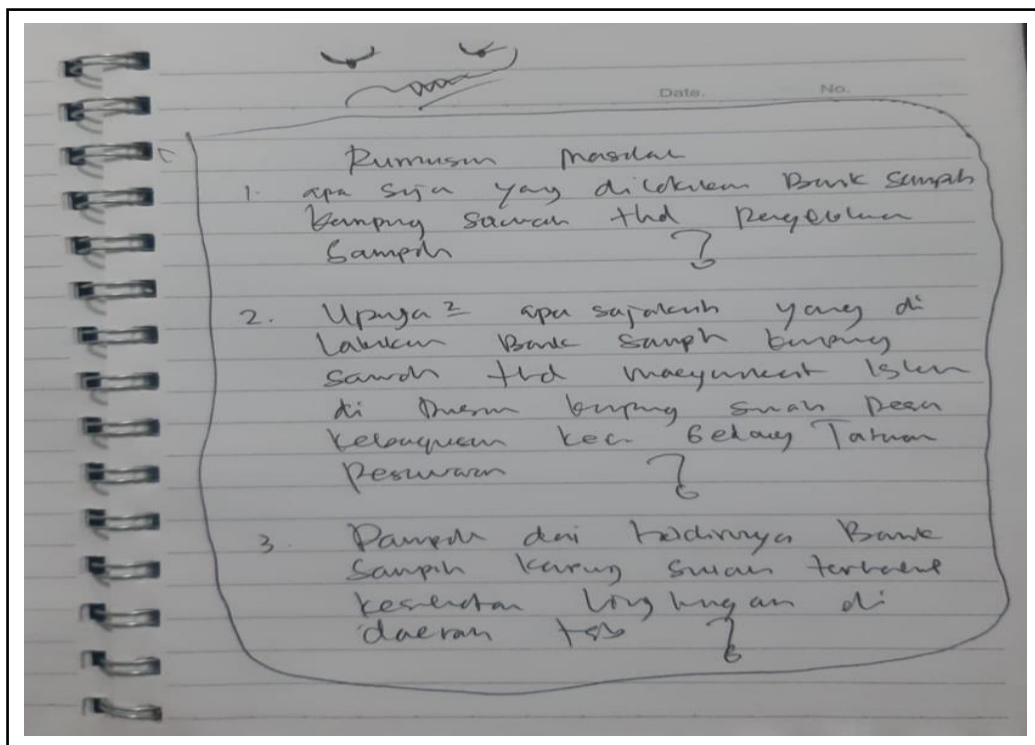 Date. No.
Rumusan Masalah
1. apa saja yang dilakukan Bank Sampah
kampung sawah thd pengelolaan
Sampah ?
2. Upaya² apa sajakah yang di
lakukan Bank Sampah kampung
sawah thd masyarakat Islam
di Dusun kampung sawah Desa
kec. Gedong Tataan
Pesawaran ?
3. Dampak dari hadirnya Bank
Sampah sawah terhadap
kesehatan lingkungan di
daerah tsb ?